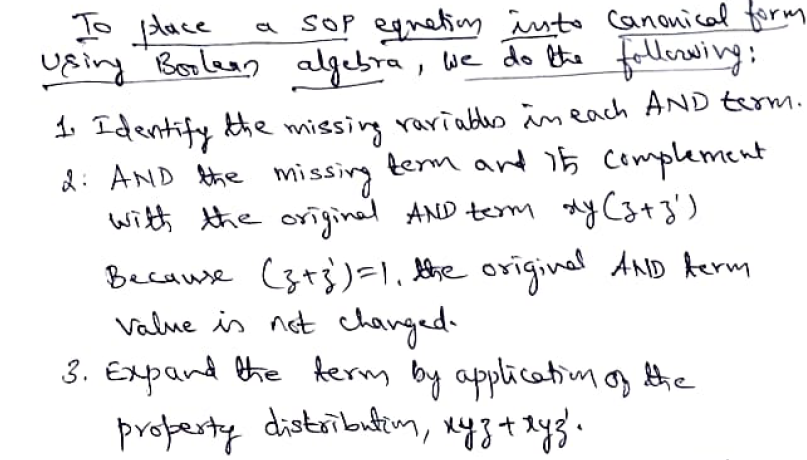 To place a SOP equation into canonical form
using Boolean algebra, we do the following:
1. Identify the missing variables in each AND term.
2: AND the missing term and its complement
with the original AND term xy(z+z')
Because (z+z')=1, the original AND term
value is not changed.
3. Expand the term by application of the
property distribution, xyz + xyz'.